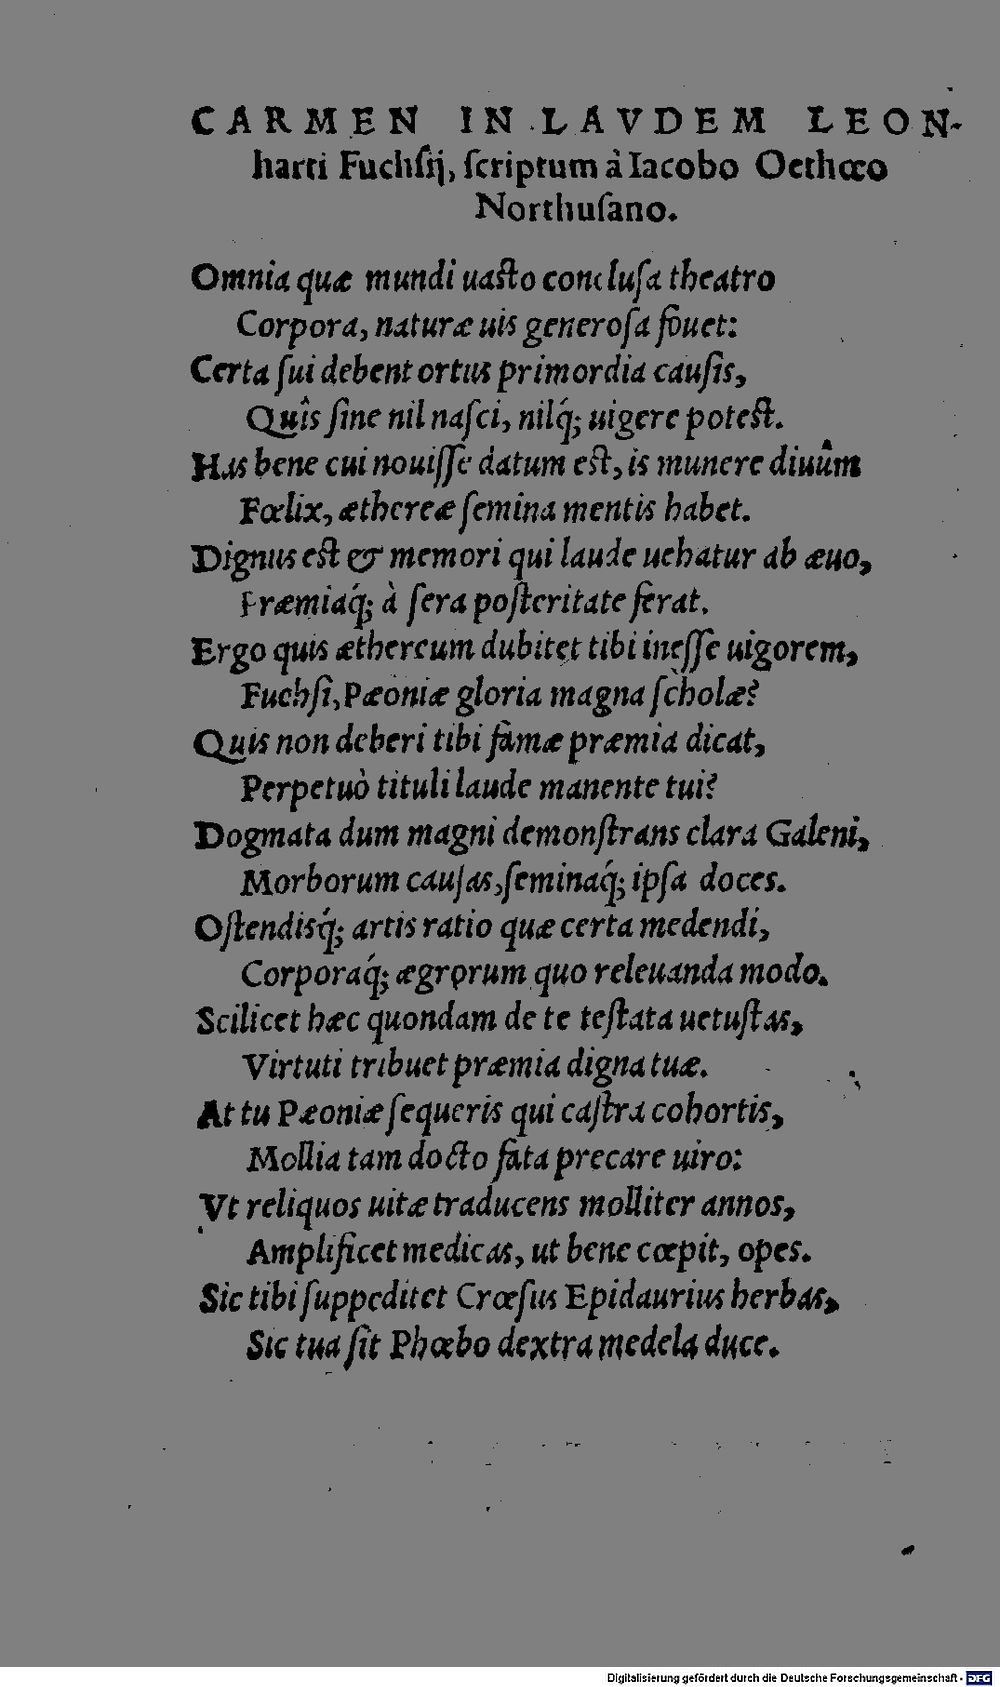 CARMEN IN LAVDEM LEON-
harti Fuchſij, ſcriptum à Iacobo Oethœo
Northuſano.
Omnia quæ mundi uaſto concluſa theatro
Corpora, naturæ uis generoſa fouet:
Certa ſui debent ortus primordia cauſis,
Quîs ſine nil naſci, nilq́; uigere poteſt.
Has bene cui nouiſſe datum eſt, is munere diuûm
Fœlix, æthereæ ſemina mentis habet.
Dignus eſt & memori qui laude uehatur ab æuo,
Præmiaq́; à ſera poſteritate ferat.
Ergo quis æthereum dubitet tibi ineſſe uigorem,
Fuchſi, Pæoniæ gloria magna ſcholæ?
Quis non deberi tibi famæ præmia dicat,
Perpetuò tituli laude manente tui?
Dogmata dum magni demonſtrans clara Galeni,
Morborum cauſas, ſeminaq́; ipſa doces.
Oſtendisq́; artis ratio quæ certa medendi,
Corporaq́; ægrorum quo releuanda modo.
Scilicet hæc quondam de te teſtata uetuſtas,
Virtuti tribuet præmia digna tuæ.
At tu Pæoniæ ſequeris qui caſtra cohortis,
Mollia tam docto fata precare uiro:
Vt reliquos uitæ traducens molliter annos,
Amplificet medicas, ut bene cœpit, opes.
Sic tibi ſuppeditet Crœſus Epidaurius herbas,
Sic tua ſit Phœbo dextra medela duce.
Digitalisierung gefördert durch die Deutsche Forschungsgemeinschaft - DFG